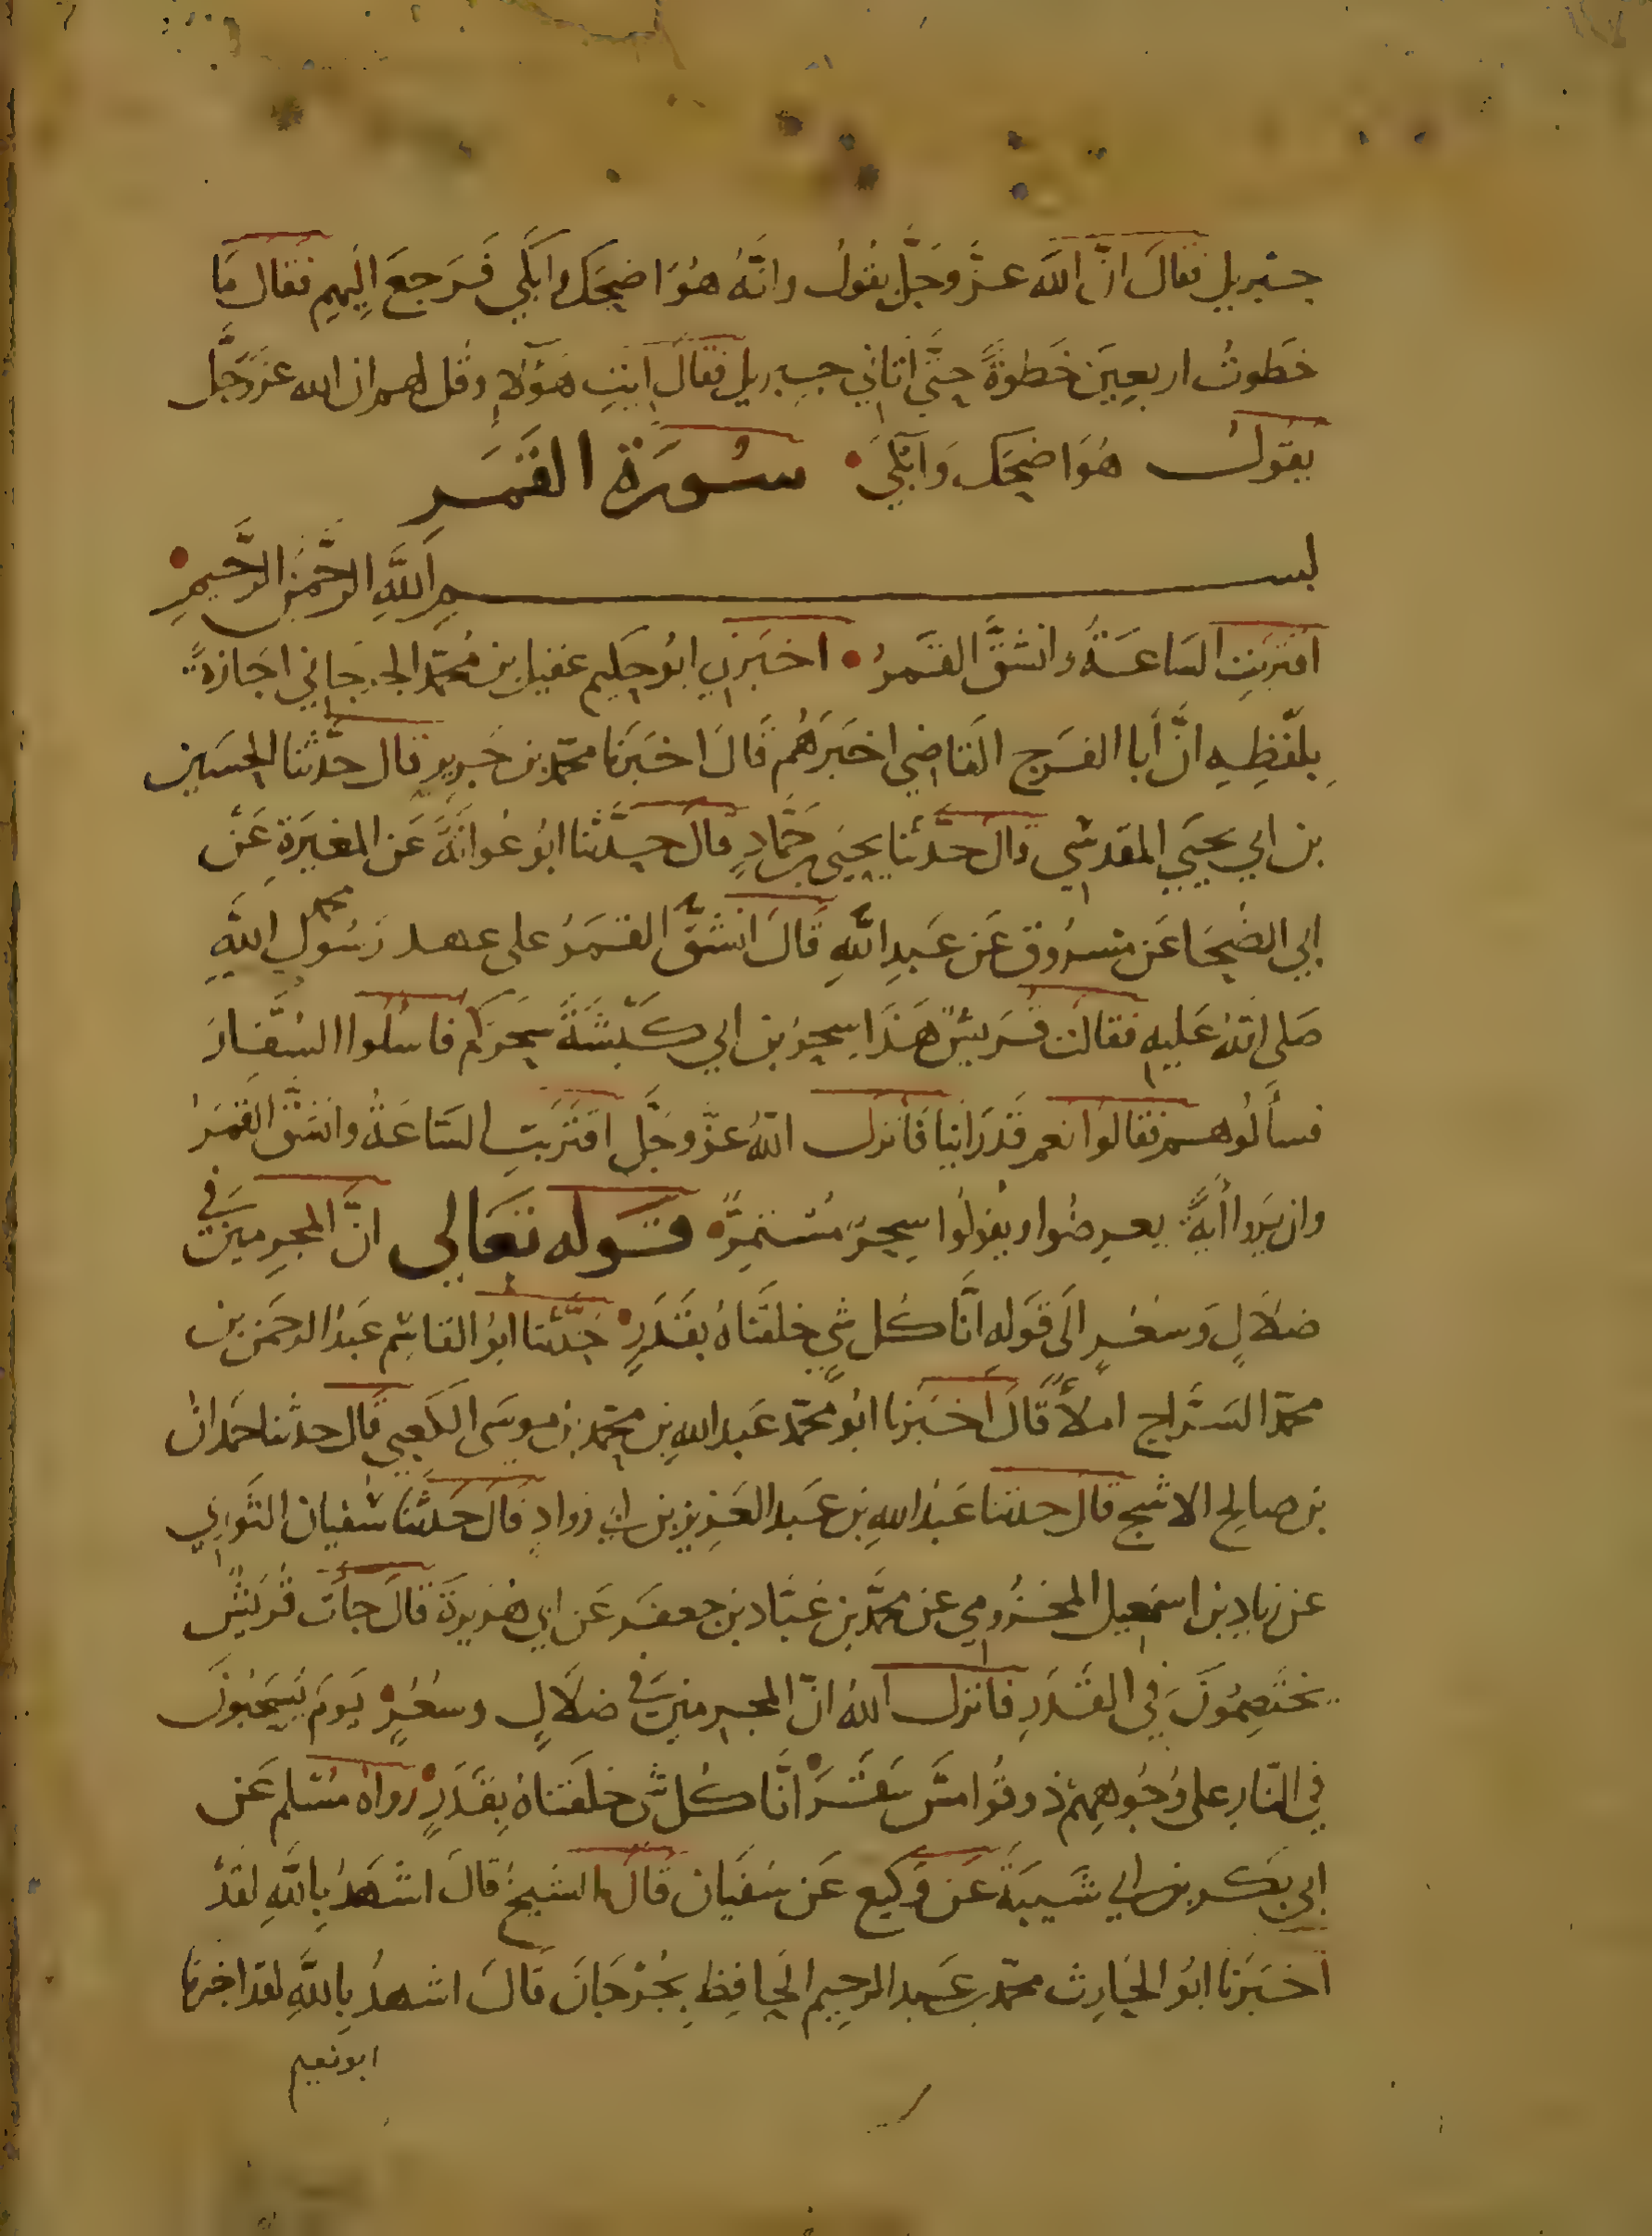 جبريل فقالَ انَّ اللَه عزَّ وجَلَّ يقُولُ وانَّهُ هُوَ اضحَكَ وابكَي فَرَجعَ اِليهِم فقالَ مَا
خَطَوتُ اربعِينَ خَطوَةً حتَّي اتاني جبريل فقالَ ايتِ هَؤلآءِ وقُل لهم ان الله عزوَجَّل
يقولُ هُوَ اضحَكَ وَابْكَي سُورَة القَمَر
بسم اللَّهِ الرَّحمَن الرَّحيمِ
اقتربَتِ السَاعَةُ وانشَقَّ القَمَرُ اخبَرني ابُو حكِيم عقيل بن مُحمَّد الجرجَاني اجَازةً
بِلَفظِهِ انَّ أبا الفَرَج القَاضِي اخبَرَهُم قَالَ اخبَرَنا محمَّد بن جَرِير قال حدَّثنا الحسَين
بن ابي يحيَي المقدسِي قال حدَّثنا يحيَى بن حَمَّادٍ قالَ حدَّثنا ابُو عُوانَةَ عَن المغيرَةِ عَنْ
ابي الضُحَا عَن مسرُوق عَن عَبدِ اللَّهِ قَالَ انشَقَّ القمَرُ على عهد رَسُولِ اللَّهِ
صَلى اللهُ عَليهِ فقالَت قُرَيشٌ هَذَا سِحرُ بن ابي كَبْشَةَ سحَرَكم فاسئلُوا السُفَّارَ
فسألُوهم فقالوُا نعم قَد رَاينا فَانزل اللهُ عزَّ وجَلَّ اقتَرَبَتِ السَاعَةُ وانشَقَّ القَمَرُ
وان يَروا أيةً يعرِضُوا ويقولُوا سِحرٌ مُستَمِرٌّ قوله تعَالي انَّ المجرِمينَ في
ضلَالٍ وَسُعُرٍ الَى قَولِه انَّا كُل شيٍ خلقنَاهُ بقَدَرٍ حَدَّثنا ابوُ القاسِم عَبدُ الرحمَن بن
محمَّد السَرَّاج املأً قَالَ أخبَرَنا ابُو محَمَّد عَبد اللهِ بن محمَّد بن موسَى الكَعبي قَال حدثنا حَمدان
بن صالِح الاشج قالَ حدثنا عَبدُ اللهِ بن عبد العَزِيز بن ابي روادٍ قالَ حَدثنَا سُفيان الثَوري
عن زيادِ بن اسمعِيل المخزُومي عن محمَّد بن عَبَّاد بن جعفَر عَن ابي هُرَيرَةَ قالَ جأَت قُرَيشٌ
يختَصِمُونَ في القَدَرِ فانزل اللهُ انَّ المجرمينَ في ضلَالٍ وسُعُرٍ يَومَ يُسحَبُونَ
في النَّارِ على وُجُوهِهِم ذوقُوا مَسَّ سَقَرَ انَّا كُل شي خلَقنَاهُ بِقَدَرٍ رواهُ مُسلم عَن
ابي بَكر بن ابي شَيبَةَ عَن وَكيع عَن سُفيَان قَالَ الشيخُ قالَ اشهَدُ بِاللَّهِ لقَدْ
اخبَرَنا ابُو الحَارِث محمَّد بن عَبد الرحِيم الحَافِظ بجُرْجَانَ قَالَ اشهدُ بِاللَّهِ لقد اخبرنا
ابو نعيم